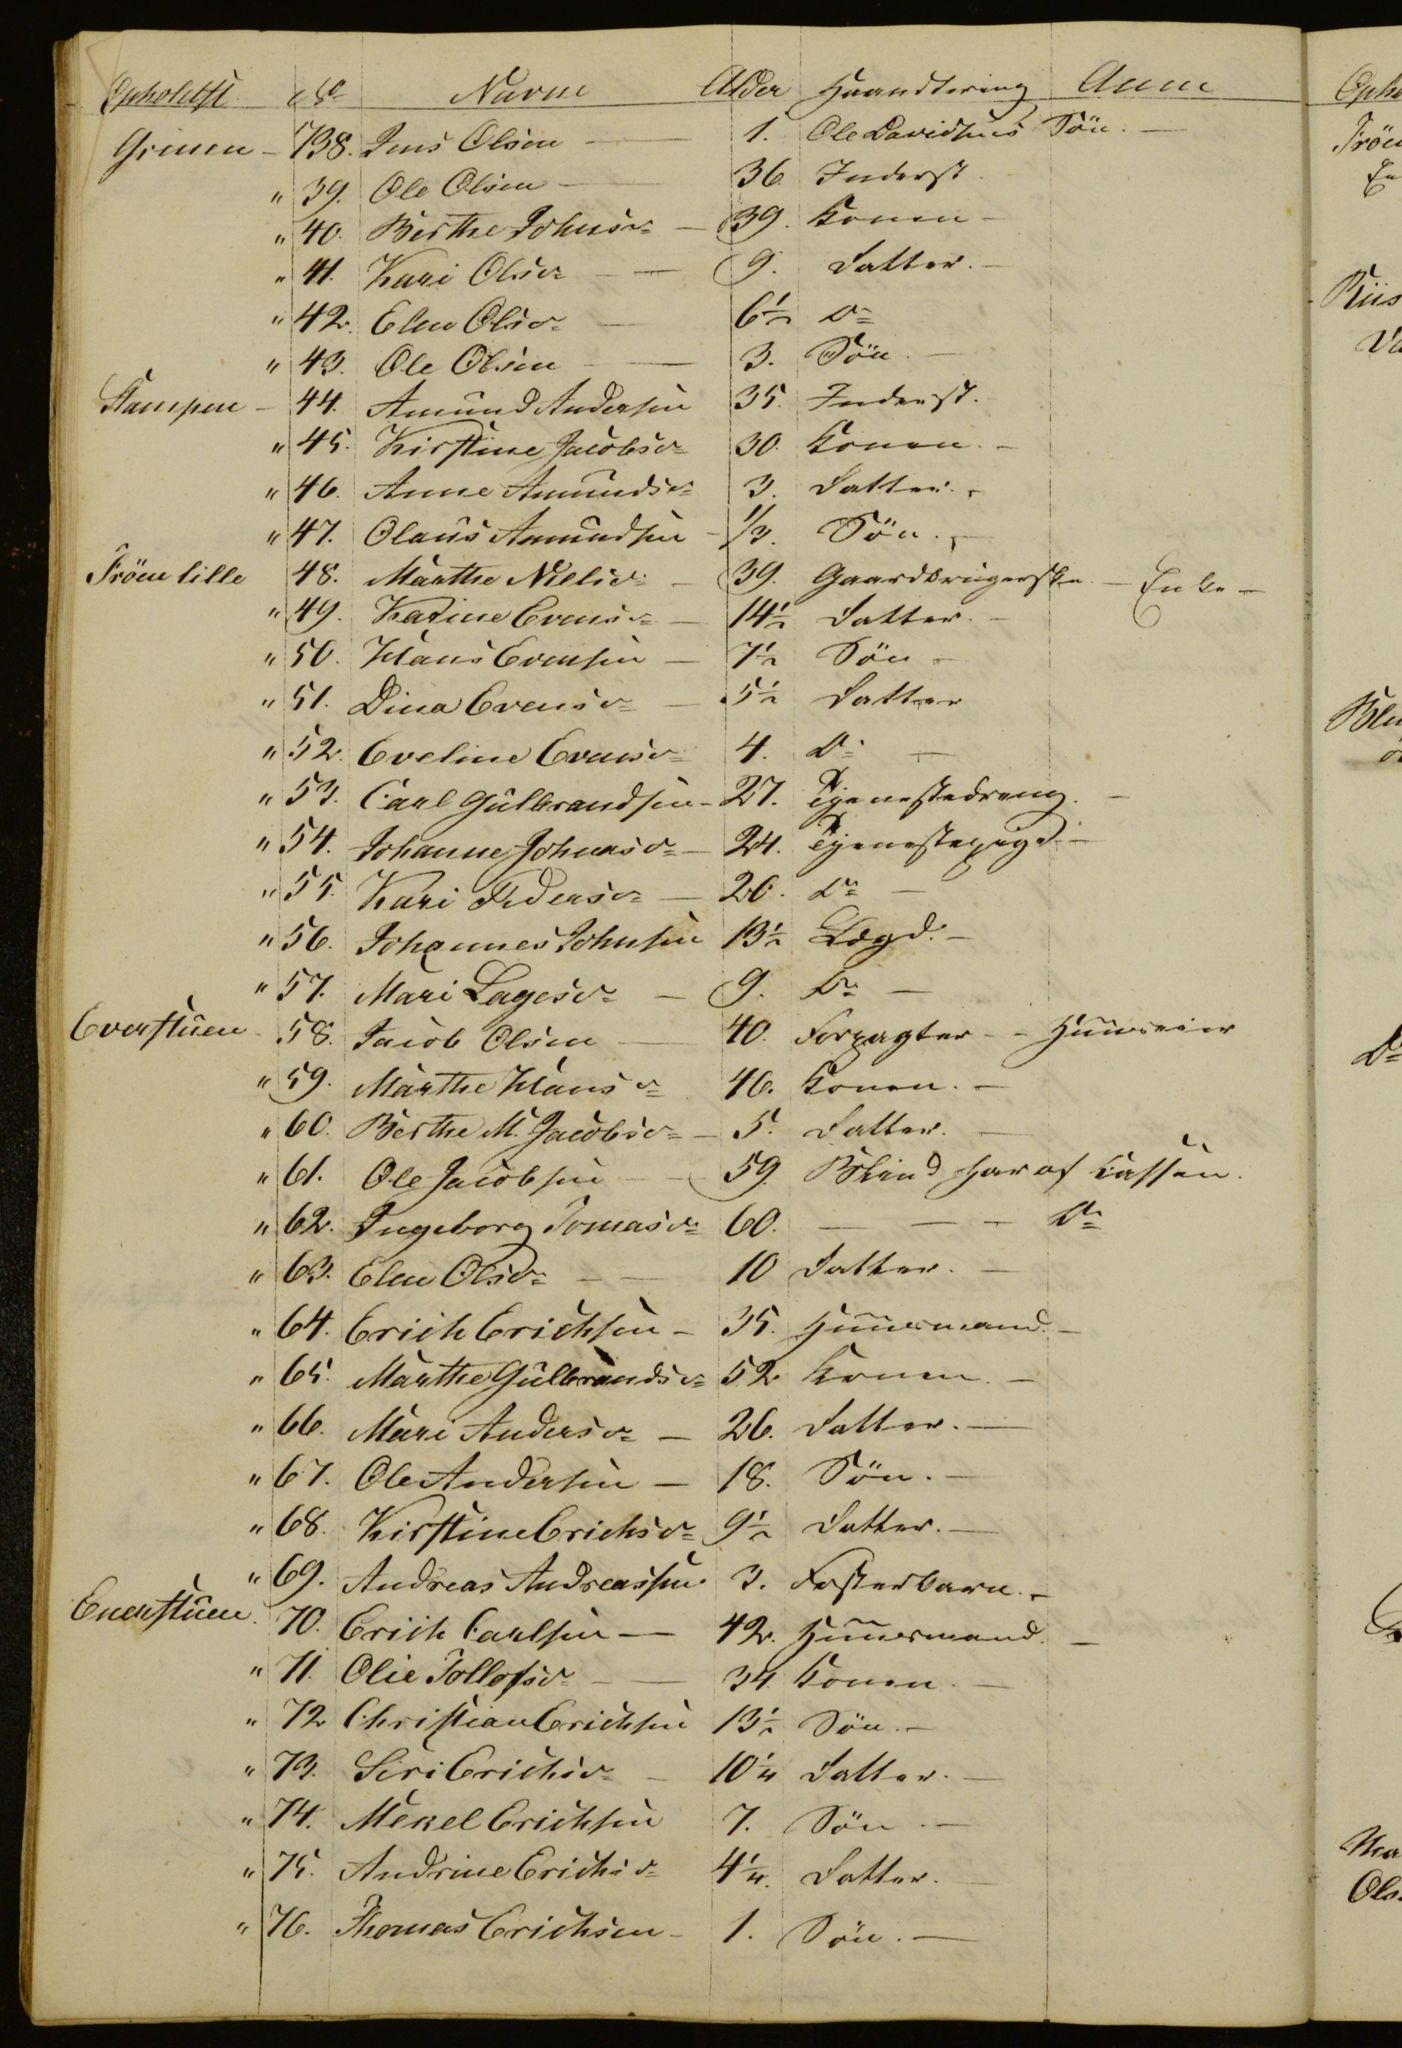 Opholdst. No Navne Alder Haandtering Anm
Grinen - 738. Jens Olsen - 1. Ole Davidsens Søn. -
" 39. Ole Olsen - 36. Inderst.
" 40. Berthe Johnsd= - 39. Konen -
" 41. Kari Olsd= - 9. Datter. -
" 42. Elen Olsd= - 6½ Do
" 43. Ole Olsen - 3. Søn. -
Stampen - 44. Amund Andersen 35. Inderst.
" 45. Kirstine Jacobsd= 30. Konen. -
" 46. Anne Amundsd= 3. Datter. -
" 47. Olaus Amundsen - 1/3. Søn. -
Fröen lille 48. Marthe Nielsd= - 39. Gaardbrugerske. - Enke -
" 49. Karine Evensd= - 14½ Datter. -
" 50. Hans Evensen - 7½ Søn -
" 51. Dina Evensd= - 5½ Datter
" 52. Eveline Evensd= 4. Do -
" 53. Carl Gulbrandsen - 27. Tjenestedreng. -
" 54. Johanne Johnasd= - 24. Tjenestepige. -
" 55. Kari Pedersd= - 20. Do -
" 56. Johannes Johnsen 13½ Lægd. -
" 57. Mari Lagesd= - 9. Do -
Everstuen - 58. Jacob Olsen - 40. Forpagter - - Huuseier
" 59. Marthe Hansd= 46. Konen. -
" 60. Berthe M. Jacobsd= - 5. Datter. -
" 61. Ole Jacobsen - 59. Blind har af Kassen.
" 62. Ingeborg Tomasd= 60. - - - Do
" 63. Elen Olsd= - 10 Datter. -
" 64. Erich Erichsen - 35. Huusmand. -
" 65. Marthe Gulbrandsd= 52 Konen. -
" 66. Mari Andersd= - 26. Datter. -
" 67. Ole Andersen - 18. Søn. -
" 68. Kirstine Erichsd= 9½ Datter. -
" 69. Andreas Andreassen 3. Fosterbarn. -
Enerstuen 70. Erich Carlsen - 42. Huusmand. -
" 71. Olie Tollefsd= - 34. Konen. -
" 72 Christian Erichsen 13½ Søn. -
" 73. Siri Erichsd= - 10¼ Datter. -
" 74. Mekel Erichsen 7. Søn. -
" 75. Andrine Erichsd= 4¼. Datter. -
" 76. Thomas Erichsen - 1. Søn. -